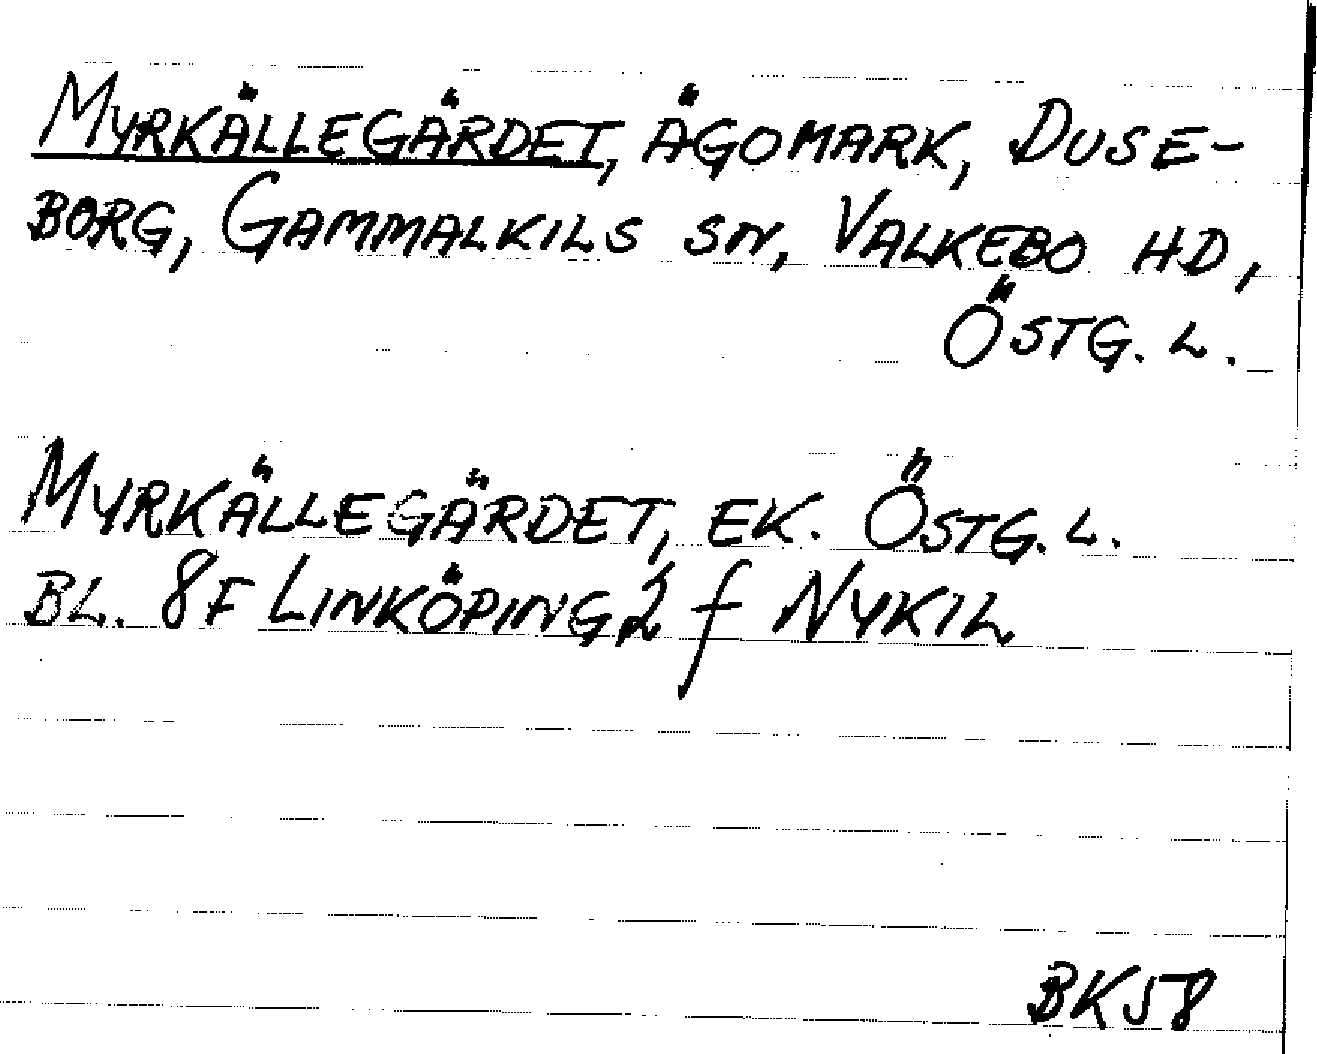 MYRKÄLLEGÄRDET, ÄGOMARK, DUSE-
BORG, GAMMALKILS SN, VALKEBO HD,
ÖSTG. L.
MYRKÄLLEGÄRDET, EK. ÖSTG. L.
BL. 8F LINKÖPING 2 f NYKIL
BK58